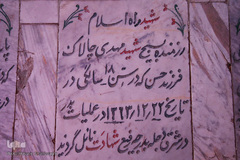 شهید راه اسلام
رزمنده بسیج شهید مهدی چالاک
فرزند حسن که در سن ۱۸ سالگی در
تاریخ ۱۳۶۳/۱۲/۲۲ در عملیات بدر
در شرق دجله به درجه رفیع شهادت نائل گردید